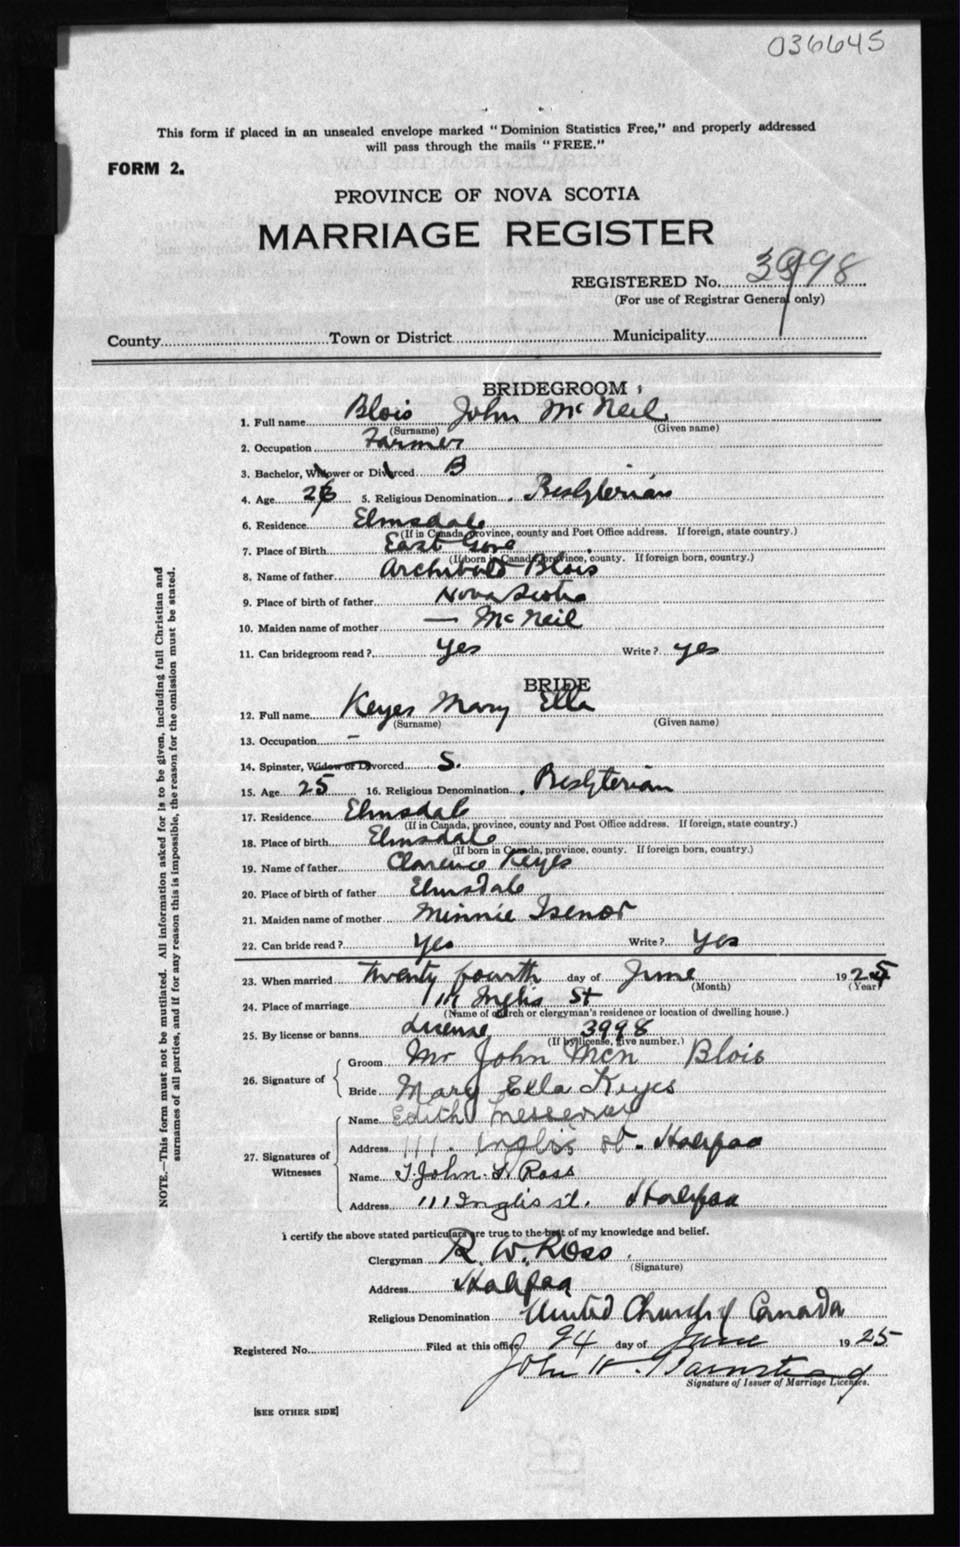 036645
This form if placed in an unsealed envelope marked "Dominion Statistics Free," and properly addressed
will pass through the mails "FREE."
FORM 2.
PROVINCE OF NOVA SCOTIA
MARRIAGE REGISTER
REGISTERED No. 3998
(For use of Registrar General only)
County Town or District Municipality
BRIDEGROOM
1. Full name Blois John McNeil
(Surname) (Given name)
2. Occupation Farmer
3. Bachelor, Widower or Divorced B
4. Age 26 5. Religious Denomination Presbyterian
6. Residence Elmsdale
(If in Canada, province, county and Post Office address. If foreign, state country.)
7. Place of Birth East Gore
(If born in Canada, province, county. If foreign born, country.)
8. Name of father Archibald Blois
9. Place of birth of father Nova Scotia
10. Maiden name of mother — McNeil
11. Can bridegroom read? yes Write? yes
BRIDE
12. Full name Keyes Mary Ella
(Surname) (Given name)
13. Occupation –
14. Spinster, Widow or Divorced S.
15. Age 25 16. Religious Denomination Presbyterian
17. Residence Elmsdale
(If in Canada, province, county and Post Office address. If foreign, state country.)
18. Place of birth Elmsdale
(If born in Canada, province, county. If foreign born, country.)
19. Name of father Clarence Keyes
20. Place of birth of father Elmsdale
21. Maiden name of mother Minnie Isenor
22. Can bride read? Yes Write? Yes
23. When married Twenty fourth day of June 1925
(Month) (Year)
24. Place of marriage 111 Inglis St
(Name of church or clergyman's residence or location of dwelling house.)
25. By license or banns License 3998
(If by license, give number.)
26. Signature of
Groom Mr John McN Blois
Bride Mary Ella Keyes
27. Signatures of Witnesses
Name Edith
Address 111. Inglis st. Halifax
Name T. John S. Ross
Address 111 Inglis st. Halifax
I certify the above stated particulars are true to the best of my knowledge and belief.
Clergyman R. W. Ross
(Signature)
Address Halifax
Religious Denomination United Church of Canada
Registered No. Filed at this office 24 day of June 1925
John H. Barnstead
Signature of Issuer of Marriage Licenses.
[SEE OTHER SIDE]
NOTE.—This form must not be mutilated. All information asked for is to be given, including full Christian and
surnames of all parties, and if for any reason this is impossible, the reason for the omission must be stated.